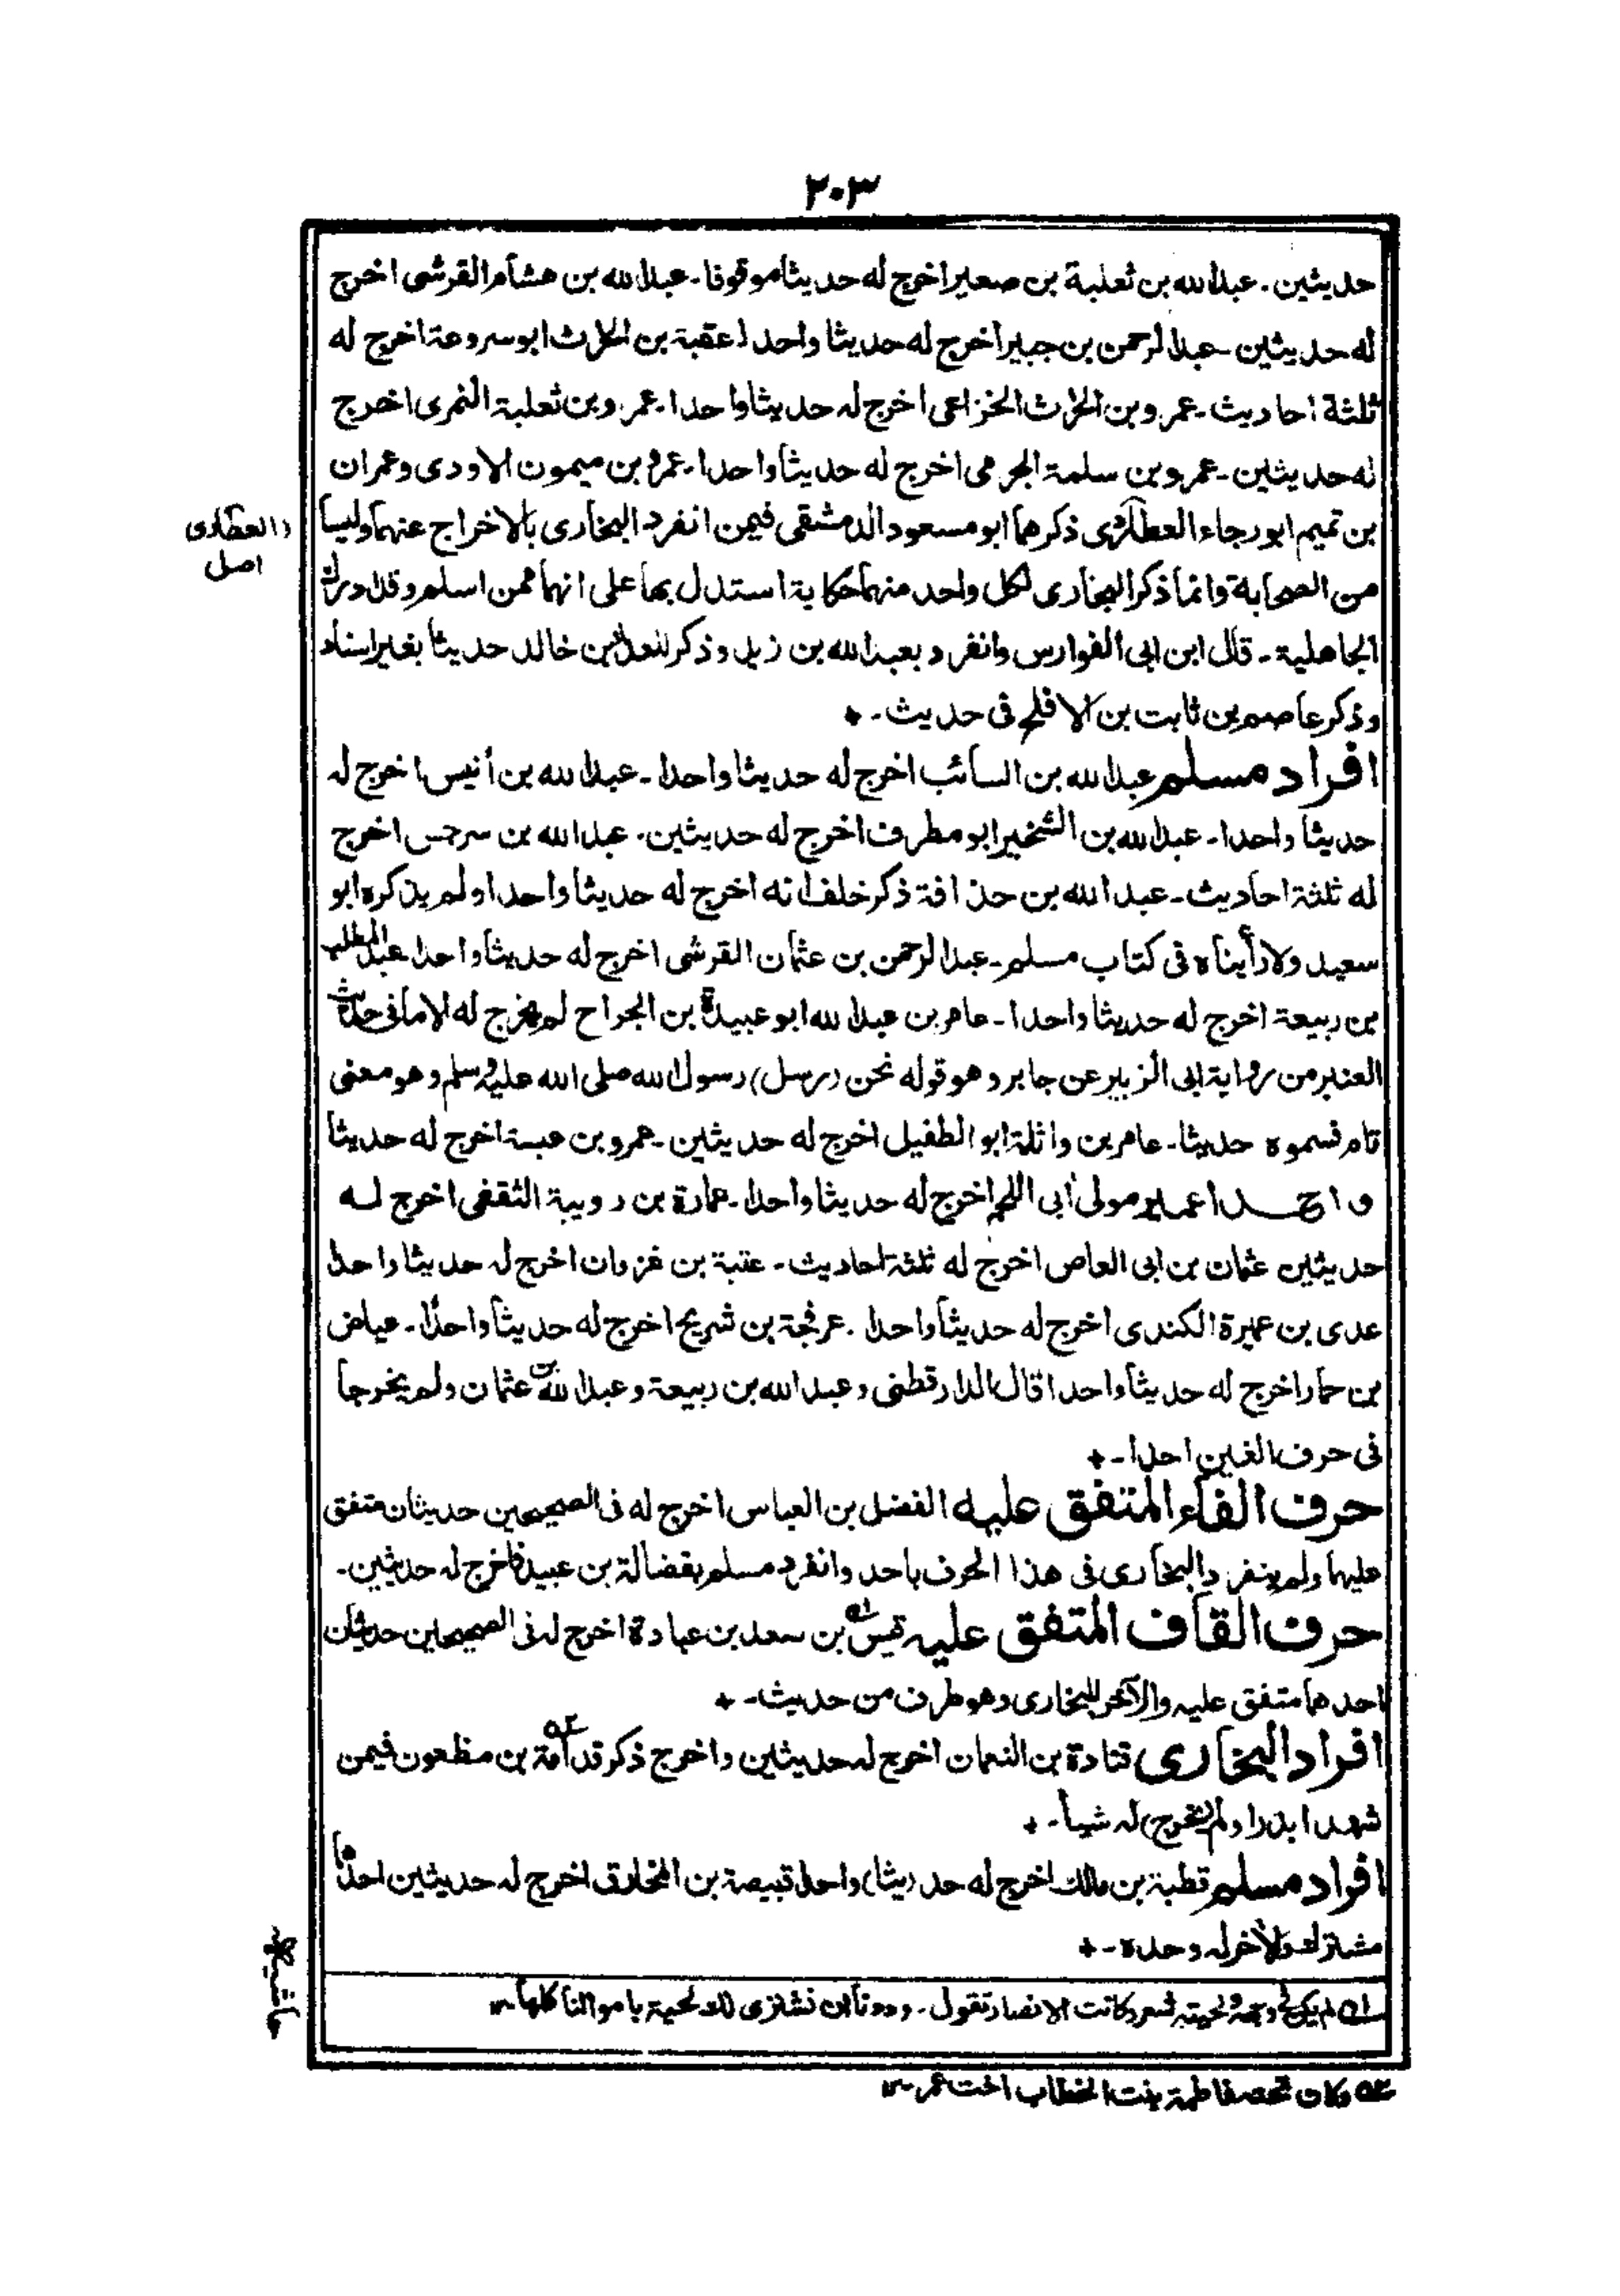 ٢٠٣
حديثين ـ عبدالله بن ثعلبة بن صعير اخرج له حديثا موقوفا ـ عبدالله بن هشام القرشى اخرج
له حديثين ـ عبدالرحمن بن جبير اخرج له حديثا واحدا عقبة بن الحرث ابو سروعة اخرج له
ثلثة احاديث ـ عمرو بن الحرث الخزاعى اخرج له حديثا واحدا ـ عمرو بن ثعلبة النمرى اخرج
له حديثين ـ عمرو بن سلمة الجرمى اخرج له حديثا واحدا ـ عمرو بن ميمون الاودى وعمران
بن تميم ابو رجاء العطاردى ذكرهما ابو مسعود الدمشقى فيمن انفرد البخارى بالاخراج عنهما وليسا
(العطاردى
اصل
من الصحابة وانما ذكر البخارى لكل واحد منهما حكاية استدل بها على انهما ممن اسلم وقد ادرك
الجاهلية ـ قال ابن ابى الفوارس وانفرد بعبدالله بن زيد وذكر بن خالد حديثا بغير اسناد
وذكر عاصم بن ثابت بن الافلح فى حديث ـ +
افراد مسلم عبدالله بن السائب اخرج له حديثا واحدا ـ عبدالله بن أنيس اخرج له
حديثا واحدا ـ عبدالله بن الشخير ابو مطرف اخرج له حديثين ـ عبدالله بن سرجس اخرج
له ثلثة احاديث ـ عبدالله بن حذافة ذكر خلف انه اخرج له حديثا واحدا ولم يذكره ابو
سعيد ولا رأيناه فى كتاب مسلم ـ عبدالرحمن بن عثمان القرشى اخرج له حديثا واحدا عبدالمطلب
بن ربيعة اخرج له حديثا واحدا ـ عامر بن عبدالله ابو عبيدة بن الجراح لم يخرج له الا ما فى حديث
العنبر من رواية ابى الزبير عن جابر وهو قوله نحن (رسل) رسول الله صلى الله عليه وسلم وهو معنى
تام فسموه حديثا ـ عامر بن واثلة ابو الطفيل اخرج له حديثين ـ عمرو بن عبسة اخرج له حديثا
واحدا عمير مولى أبى اللحم اخرج له حديثا واحدا ـ عمارة بن رويبة الثقفى اخرج له
حديثين عثمان بن ابى العاص اخرج له ثلثة احاديث ـ عتبة بن غزوان اخرج له حديثا واحدا
عدى بن عميرة الكندى اخرج له حديثا واحدا ـ عرفجة بن شريح اخرج له حديثا واحدا ـ عياض
بن حمار اخرج له حديثا واحدا قال الدارقطنى وعبدالله بن ربيعة وعبدالله بن عثمان ولم يخرجا
فى حرف الغين احدا ـ +
حرف الفاء المتفق عليه الفضل بن العباس اخرج له فى الصحيحين حديثان متفق
عليهما ولم ينفرد البخارى فى هذا الحرف باحد وانفرد مسلم بفضالة بن عبيد فاخرج له حديثين ـ
حرف القاف المتفق عليه قيس ۵۱ بن سعد بن عبادة اخرج له فى الصحيحين حديثان
احدهما متفق عليه والآخر للبخارى وهو طرف من حديث ـ +
افراد البخارى قتادة بن النعمان اخرج له حديثين واخرج ذكر قدامة ۵۲ بن مظعون فيمن
شهد ابدرا ولم (يخرج) له شيأ ـ +
افراد مسلم قطبة بن مالك اخرج له حد (يثا) واحدا قبيصة بن المخارق اخرج له حديثين احدهما
مشترك والآخر له وحده ـ +
حاشيه
۵۱ لم يكن فى وجهه ولحيته شعر وكانت الانصار تقول ـ وددنا ان نشترى لك لحية باموالنا كلها ـ ١٢
۵۲ وكان تحته فاطمة بنت الخطاب اخت عمر ـ ١٢